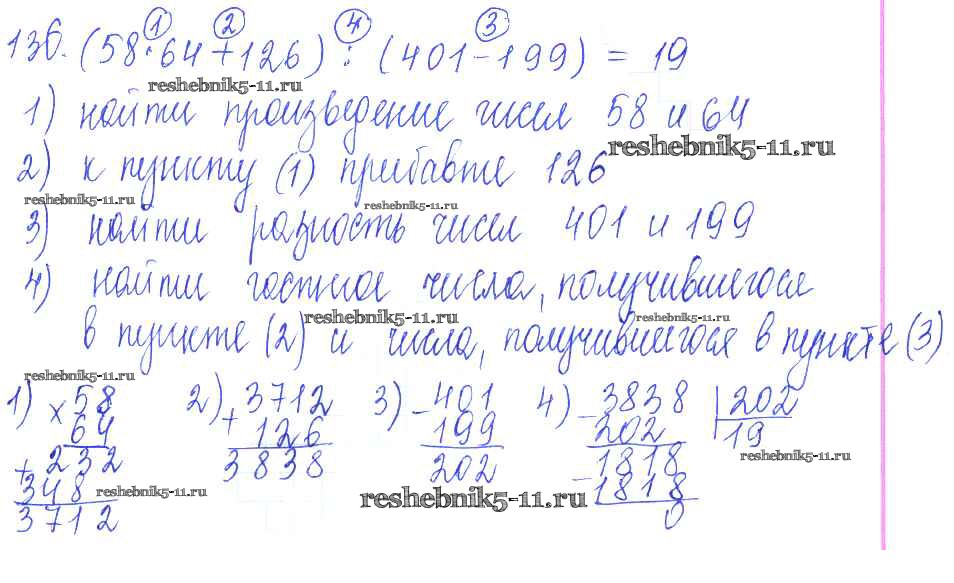 136. (58·64+126) : (401-199) = 19
1 2 4 3
reshebnik5-11.ru
1) найти произведение чисел 58 и 64
reshebnik5-11.ru
2) к пункту (1) прибавте 126
reshebnik5-11.ru reshebnik5-11.ru
3) найти разность чисел 401 и 199
4) найти частное числа, получившегося
reshebnik5-11.ru reshebnik5-11.ru
в пункте (2) и числа, получившегося в пункте (3)
reshebnik5-11.ru
1) × 58 2) + 3712 3) - 401 4) - 3838 | 202
64 126 199 202 19
+ 232 3838 202 1818
reshebnik5-11.ru
348 - 1818
reshebnik5-11.ru reshebnik5-11.ru
3712 0